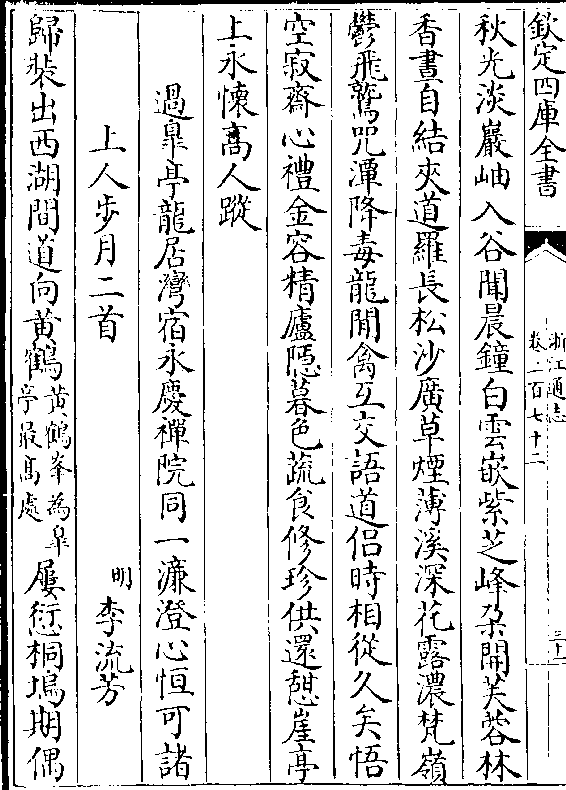 欽定四庫全書
浙江通志
卷二百七十二
三十一
秋光淡巖岫入谷聞晨鐘白雲嵌紫芝峰朶開芙蓉林
香晝自結夾道羅長松沙廣草煙薄溪深花露濃梵嶺
鬱飛鷲咒潭降毒龍閒禽互交語道侶時相從久矣悟
空寂齋心禮金容精廬隠暮色蔬食修珍供還憩崖亭
上永懷髙人蹤
過臯亭龍居灣宿永慶禪院同一濂澄心恒可諸
上人步月二首
明 李流芳
歸裝出西湖間道向黄鶴黄鶴峯為臯亭最髙處屢愆桐塢期偶